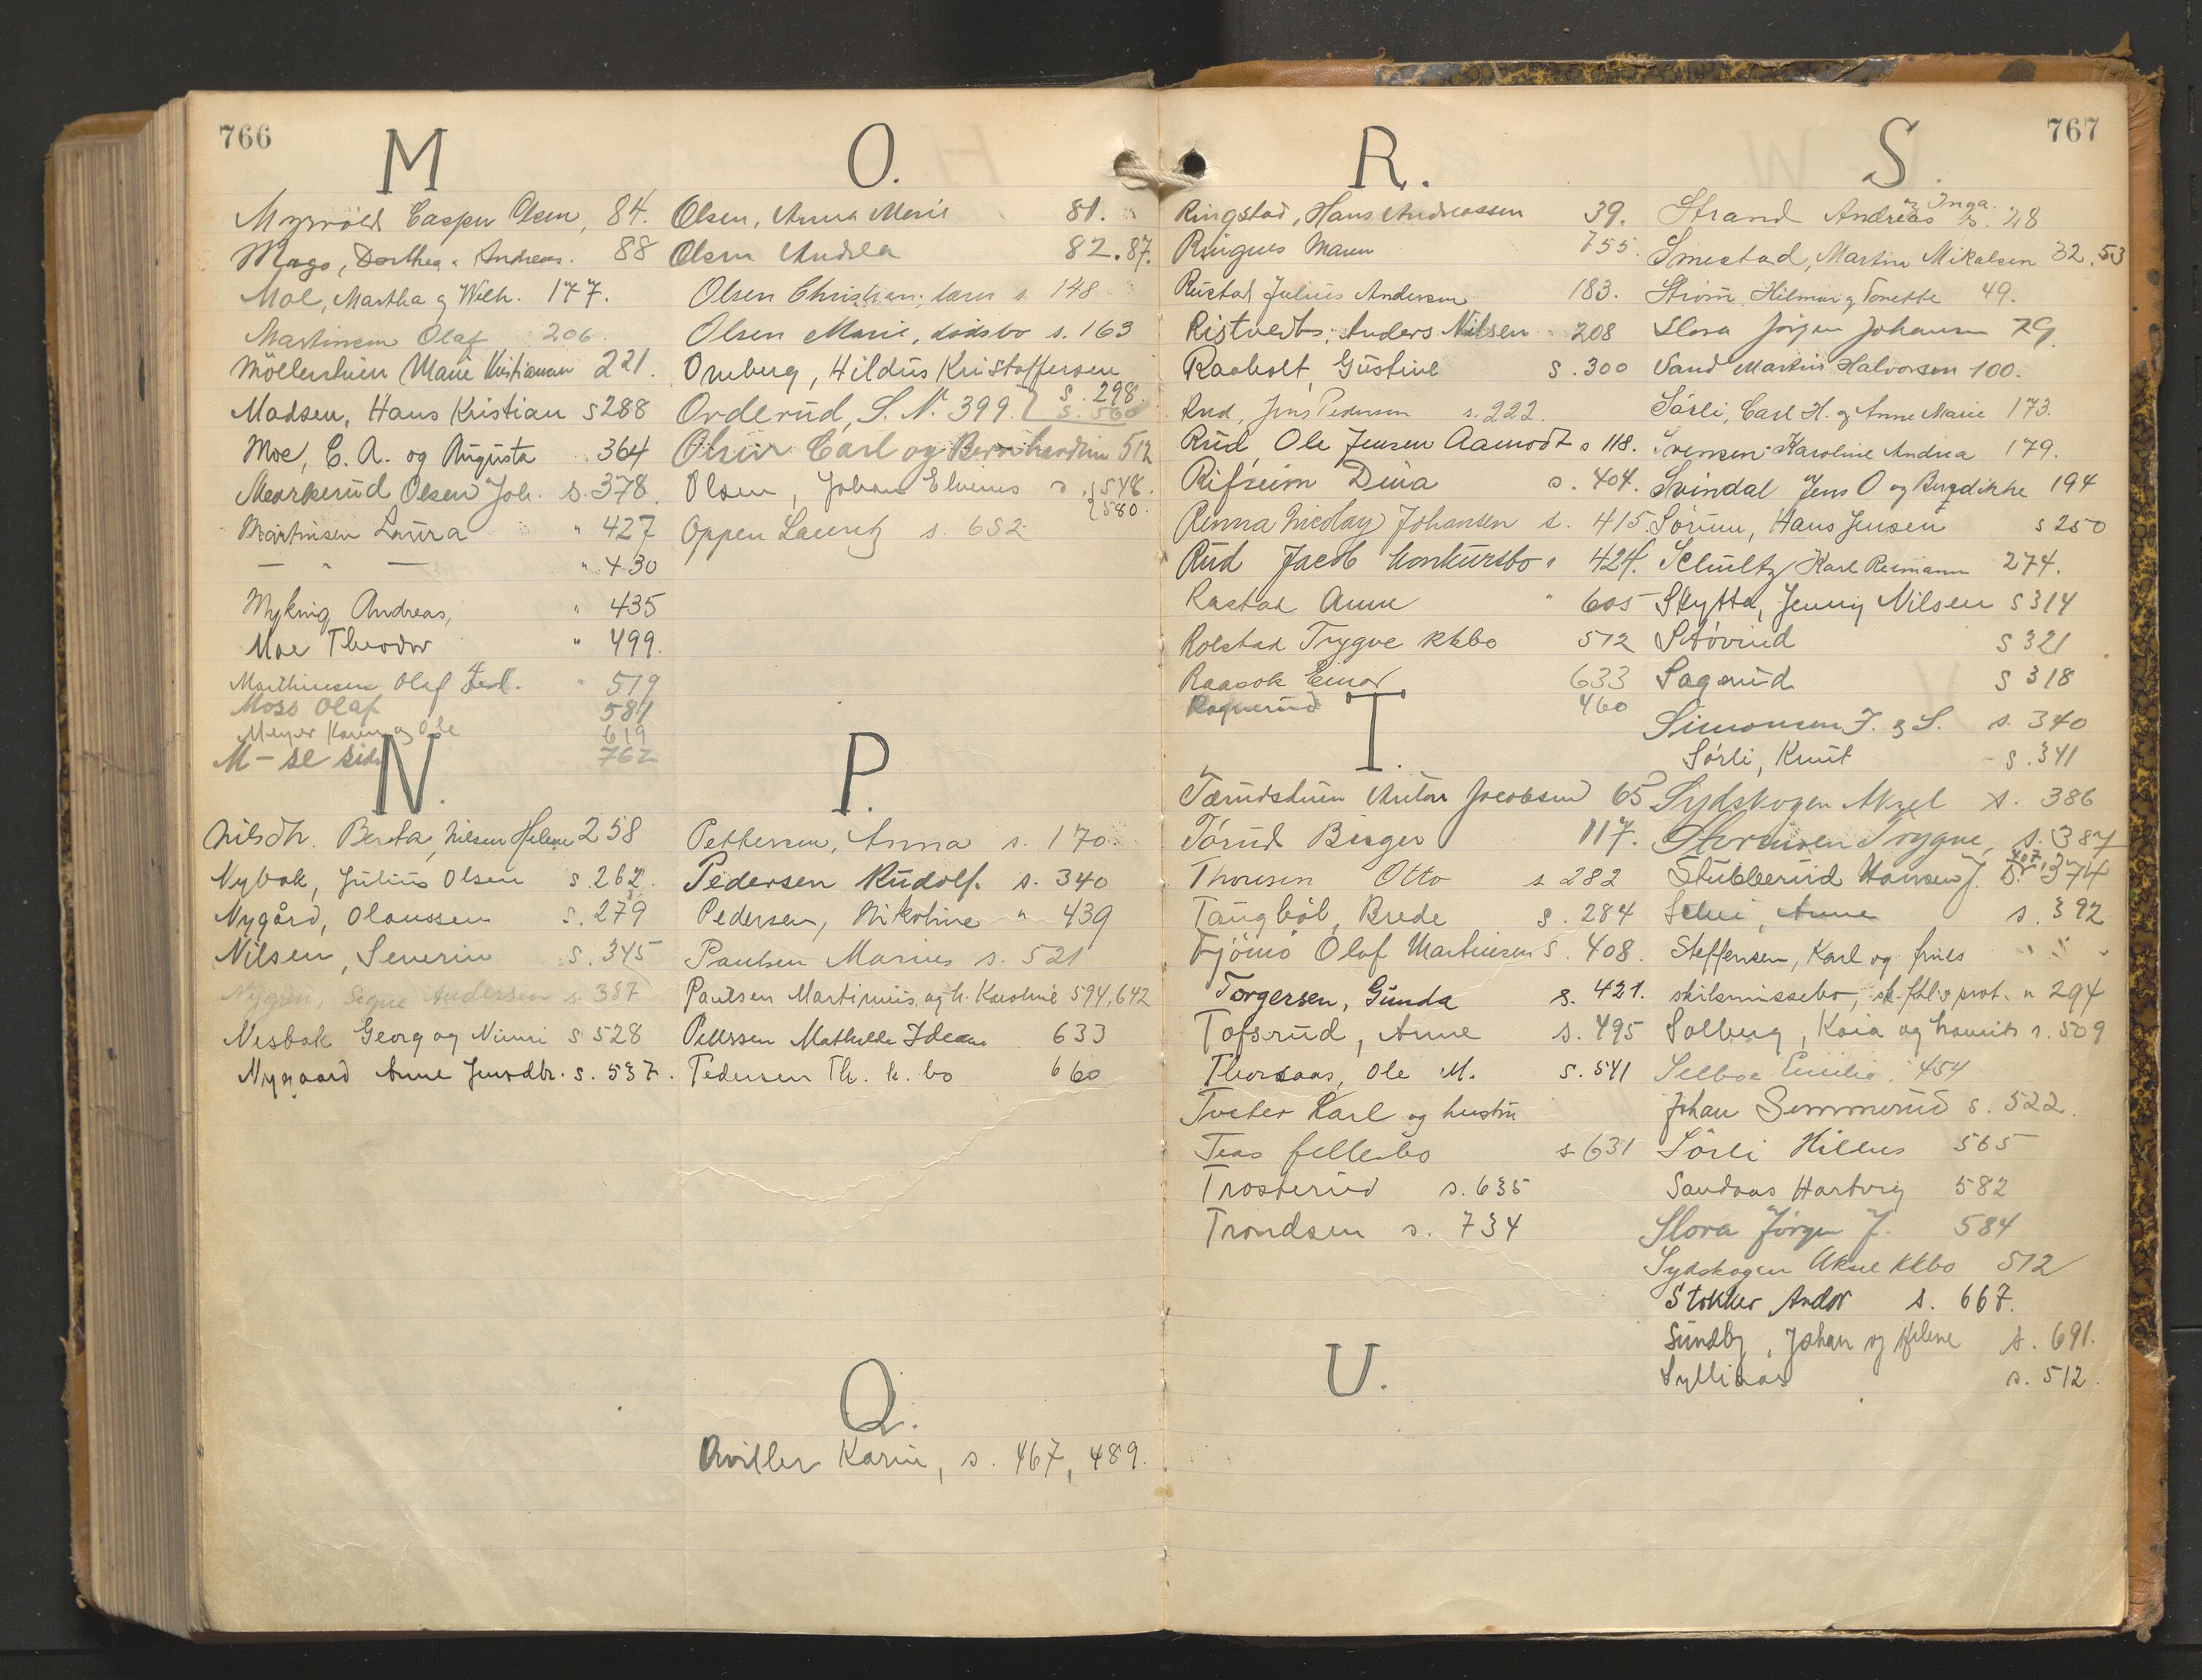 766
M
Myrvold Casper Olsen, 84.
Mago, Dorthea & Andreas. 88
Moe, Martha og Wilh. 177.
Martinsen Olaf 206.
Möllerstuen Marie Kristiansen 221.
Madsen, Hans Kristian s 288
Moe, C. A. og Augusta 364
Markerud Olsen Joh. s. 378.
Martinsen Laura " 427
— " — " 430
Myking Andreas, " 435
Moe Theodor " 499.
Marthinsen Olaf Ferd. " 519
Moss Olaf 581
Meyer Karen og Ole 619
M - se side 762
N.
Nilsdtr. Berta, Nilsen Helene 258
Nybak, Julius Olsen s. 262.
Nygård, Olaussen s. 279
Nilsen, Severin s. 345
Nygren, Signe Andersen s. 387
Nesbak Georg og Ninni s 528
Nygaard Anne Jensdtr. s. 537.
O.
Olsen, Anna Marie 81.
Olsen Andrea 82. 87.
Olsen Christian, s. 148
Olsen Marie, dødsbo s. 163
Omberg, Hildus Kristoffersen
s. 298.
Orderud, S. N. 399. s. 560
Olsen Carl og Bernhardine 512
Olsen, Johan Elvenus s. 548.
580.
Oppen Lauritz s. 652
P.
Pettersen, Anna s. 170.
Pedersen Rudolf. s. 340
Pedersen, Nikoline " 439
Paulsen Marius s. 521
Paulsen Martinius og h. Karoline 594, 642
Pettersen Mathilde 633
Pedersen Th. k. bo 660
Q.
Qviller Karin, s. 467, 489.
767
R.
Ringstad, Hans Andreassen 39.
Ringnes Maren 755.
Rustad Julius Andersen 183.
Ristvedt, Anders Nilsen 208
Raaholt, Gustine s. 300
Rud, Jens Pedersen s. 222.
Rud, Ole Jensen Aamodt s 118.
Rifseim Dina s. 404.
Renna Nicolay Johansen s. 415
Rud Jacob konkursbo " 424.
Rastad Anne " 605
Rolstad Trygve kkbo 512
Raasok Einar 633
Ragnerud 460
T.
Tærudstuen Anton Jacobsen 65
Tórud Birger 117.
Thoresen Otto s 282
Taugböl, Brede s. 284
Tjömö Olaf Martinsen s. 408.
Torgersen, Gunda s. 421.
Tofsrud, Anne s. 495
Thorsaas, Ole M. s. 541
Tveter Karl og hustru
Teas fellesbo s 631
Trosterud s. 635
Trondsen s. 734
U.
S.
Strand Andreas og Inga. s. 28
Smestad, Martin Mikalsen 32, 53
Strøm, Hilmar og Tonette 49.
Slora Jørgen Johansen 79.
Sand Martin Halvorsen 100.
Sörli, Carl H. og Anne Marie 173.
Svensen Karoline Andrea 179.
Svindal Jens O og Birgdikke 194
Sörum, Hans Jensen s 250
Schultz Karl Reimann 274.
Skytta, Jenny Nilsen s 314
Stövind s 321
Sagerud s 318
Simonsen J. & S. s. 340
Sörli, Knut s. 341
Sydskogen Aksel s. 386
Storeusen Trygve, s. 387
407,
Stubberud Hansen J. s. 374
Schei, Anne s. 392
Steffensen, Karl og frues
skilsmissebo, sk. fhl.s prot. " 294
Solberg, Kaia og Laurits s. 509
Selboe Emilie. 454
Johan Semmerud s. 522.
Sörli Hilleus 565
Sandaas Hartvig 582
Slora Jörgen J. 584
Sydskogen Aksel kkbo 512
Stokker Andor s. 667.
Sundby, Johan og Helene s. 691.
Syllisaas s. 512.